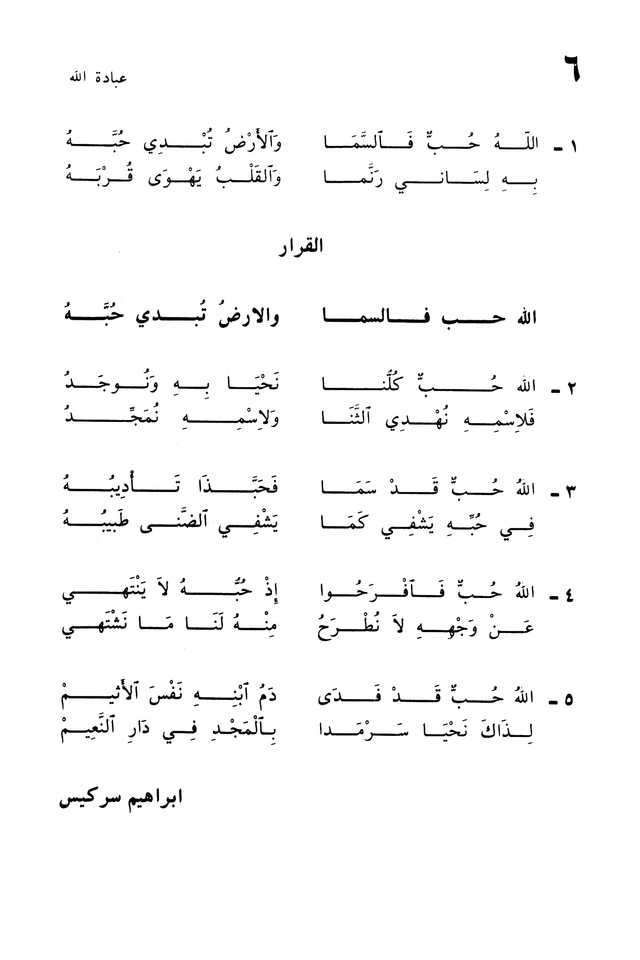 ٦
عبادة الله
١ - اللّـهُ حُـبٌّ فَـالسَّمَـا وَالأَرْضُ تُبْـدِي حُبَّـهُ
بِـهِ لِسَـانـي رَنَّمَـا وَالقَلْـبُ يَهْـوَى قُـرْبَـهُ
القرار
الله حـب فـالسمـا والارضُ تُبـدي حُبَّـهُ
٢ - الله حُـبٌّ كُلُّنـا نَحْيَـا بِـهِ وَنُـوجَـدُ
فَلاِسْمِـهِ نُهْـدِي ٱلثَّنَـا وَلاِسْمِـهِ نُمَجِّـدُ
٣ - اللهُ حُـبٌّ قَـدْ سَمَـا فَحَبَّـذَا تَـأْدِيبُـهُ
فِـي حُبِّـهِ يَشْفِـي كَمَـا يَشْفِـي ٱلضَّنـى طَبِيبُـهُ
٤ - اللهُ حُـبٌّ فَـٱفْـرَحُـوا إِذْ حُبُّـهُ لاَ يَنْتَهـي
عَـنْ وَجْهِـهِ لاَ نُطْـرَحُ مِنْـهُ لَنَـا مَـا نَشْتَهـي
٥ - اللهُ حُـبٌّ قَـدْ فَـدَى دَمُ ٱبْنِـهِ نَفْسَ الأَثيـمْ
لِـذَاكَ نَحْيَـا سَـرْمَـدا بِـٱلْمَجْـدِ فِـي دَارِ ٱلنَّعِيـمْ
ابراهيم سركيس